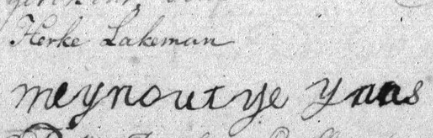 Herke Lakeman
meynoutye ynas